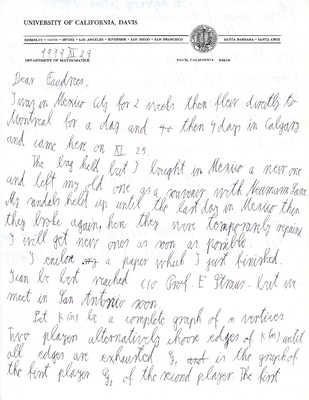 UNIVERSITY OF CALIFORNIA, DAVIS
BERKELEY • DAVIS • IRVINE • LOS ANGELES • RIVERSIDE • SAN DIEGO • SAN FRANCISCO
SANTA BARBARA • SANTA CRUZ
1979 XI 29
DEPARTMENT OF MATHEMATICS
DAVIS, CALIFORNIA 95616
Dear
I was in Mexico City for 2 weeks then flew directly to
Montreal for a day and then 4 days in Calgary
and came here on XI 29.
The bag held but I bought in Mexico a new one
and left my old one as a souvenir with Neumann Lara
My sandals held up until the last day in Mexico then
they broke again, here they were temporarily repaired
I will get new ones as soon as possible.
I enclose a paper which I just finished.
I can be best reached c/o Prof. E Straus - but we
meet in San Antonio soon
Let K(n) be a complete graph of n vertices
Two players alternatively choose edges of K(n) until
all edges are exhausted. G₁ is the graph of
the first player G₂ of the second player. The first